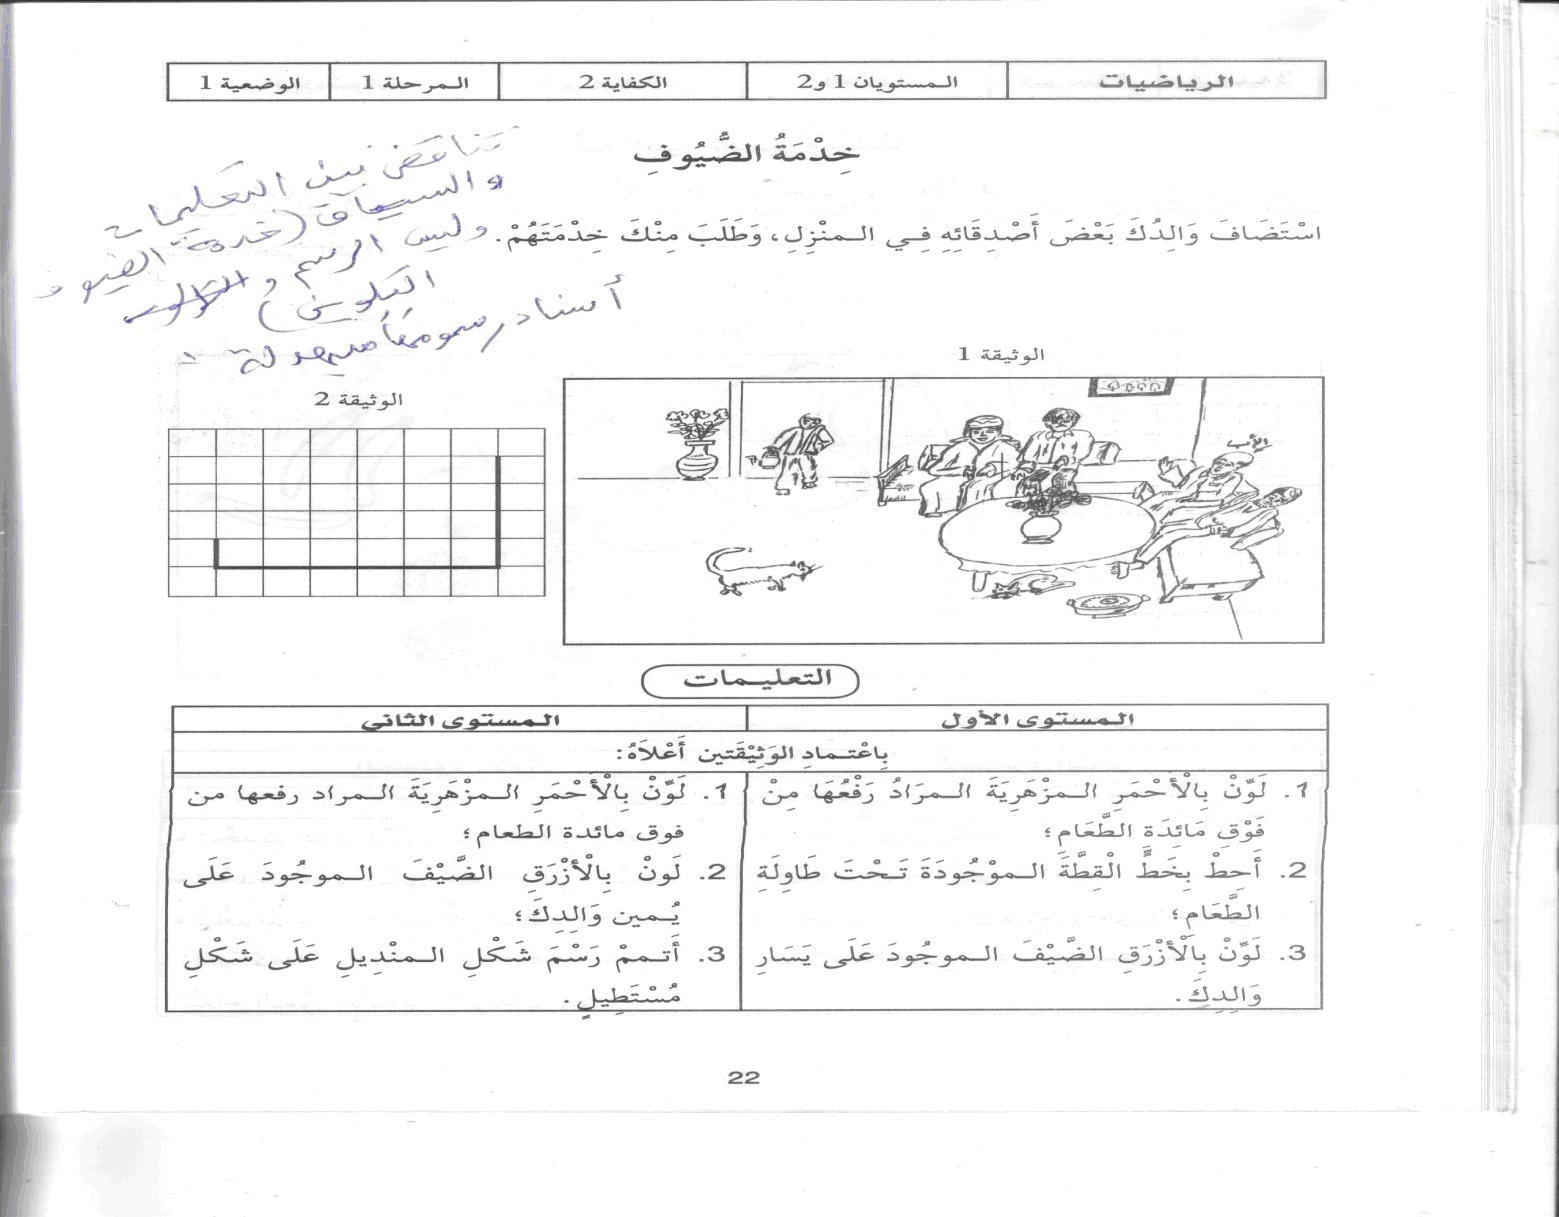 الرياضيات المستويان 1 و2 الكفاية 2 المرحلة 1 الوضعية 1
خِدْمَةُ الضُّيُوفِ
تناقض بين التعليمات
والسياق (خدمة الضيوف
وليس الرسم و
التلوين)
أسناد رسومها
اسْتَضَافَ وَالِدُكَ بَعْضَ أَصْدِقَائِهِ فِي المنْزِلِ، وَطَلَبَ مِنْكَ خِدْمَتَهُمْ.
الوثيقة 1
الأب
الوثيقة 2
التعليمات
المستوى الأول المستوى الثاني
بِاعْتمادِ الوَثِيْقَتين أَعْلاَهُ:
1. لَوِّنْ بِالْأَحْمَرِ المزْهَرِيَةَ المرَادُ رَفْعُهَا مِنْ
فَوْقِ مَائِدَةِ الطَّعَام؛
2. أَحِطْ بِخَطٍّ الْقِطَّةَ الموْجُودَةَ تَحْتَ طَاوِلَةِ
الطَّعَام؛
3. لَوِّنْ بِالْأَزْرَقِ الضَّيْفَ الموجُودَ عَلَى يَسَارِ
وَالِدِكَ.
1. لَوِّنْ بِالْأَحْمَرِ المزْهَرِيَةَ المراد رفعها من
فوق مائدة الطعام؛
2. لَونْ بِالْأَزْرَقِ الضَّيْفَ الموجُودَ عَلَى
يُمين وَالِدِكَ؛
3. أَتممْ رَسْمَ شَكْلِ المنْدِيلِ عَلَى شَكْلِ
مُسْتَطِيلٍ.
22